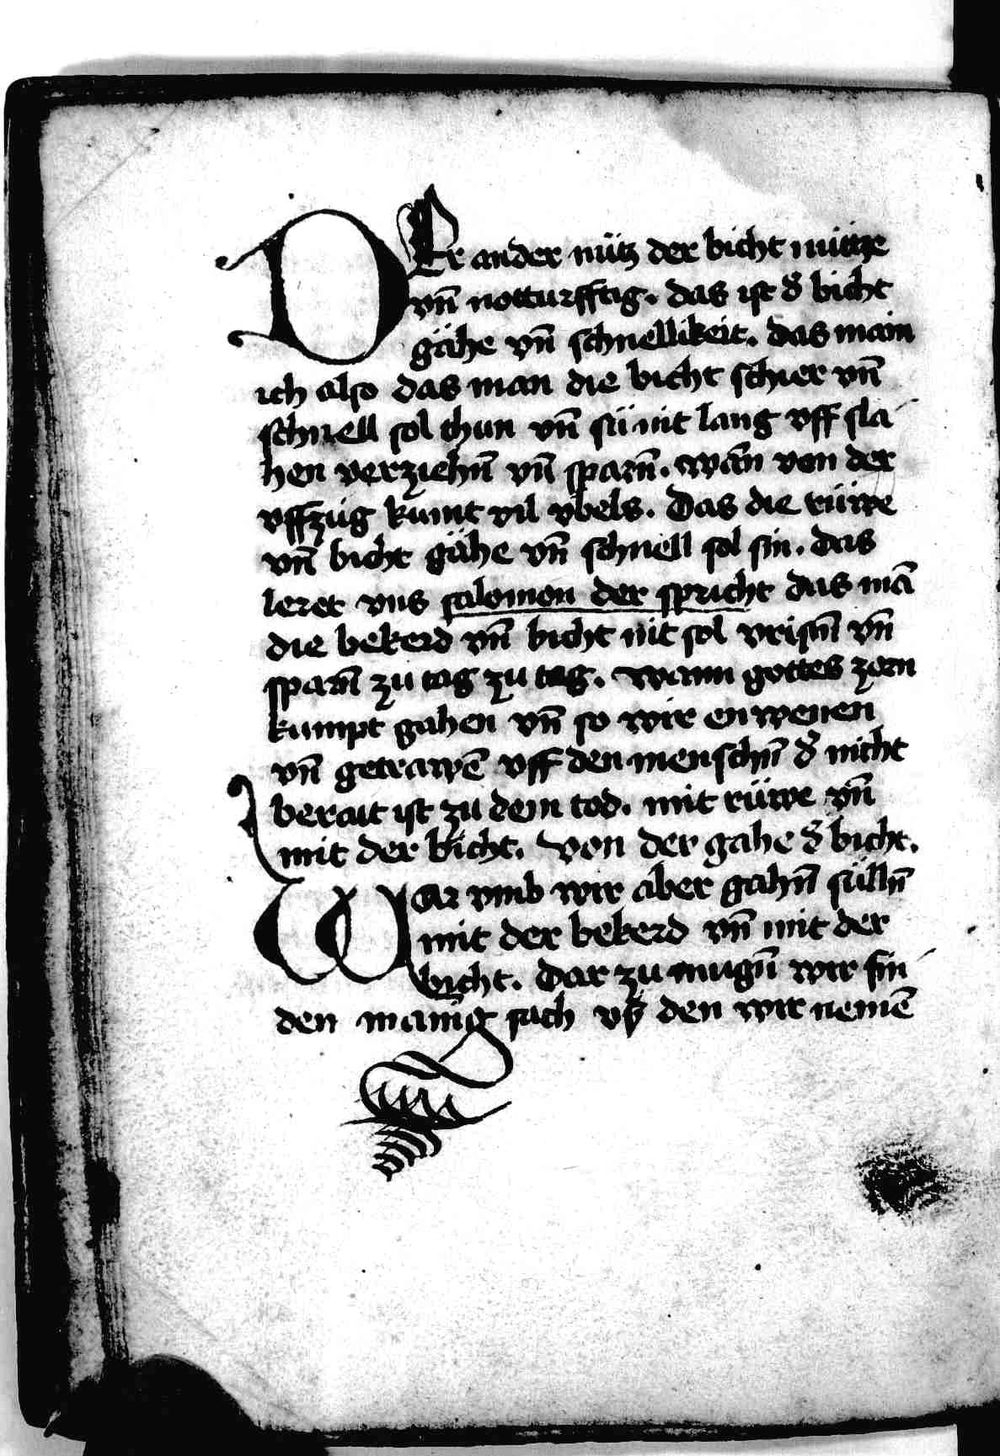 DEr ander nütz der bicht nütze
vn̄ notturfftig. das ist d̕ bicht
gähe vn̄ schnellikeit. das main
ich also das man die bicht schier vn̄
schnell sol thun vn̄ sü nit lang vff sla
hen verziehn̄ vn̄ sparn̄. wān von der
vffzüg kumt vil vbels. Das die rüwe
vn̄ bicht gähe vn̄ schnell sol sin. das
leret vns salomon der spricht das mā
die bekerd vn̄ bicht nit sol vristn̄ vn̄
sparn̄ zu tag zu tag. wann gottes zorn
kumpt gahen vn̄ so wir en wenen
vn̄ getrawē vff den menschn̄ d̕ nicht
berait ist zu dem tod. mit rüwe vn̄
mit der bicht. von der gahe d̕ bicht.
WAr vmb wir aber gahn̄ sülln̄
mit der bekerd vn̄ mit der
bicht. Dar zu mugn̄ wir fin
den manig sach vß den wir nemē